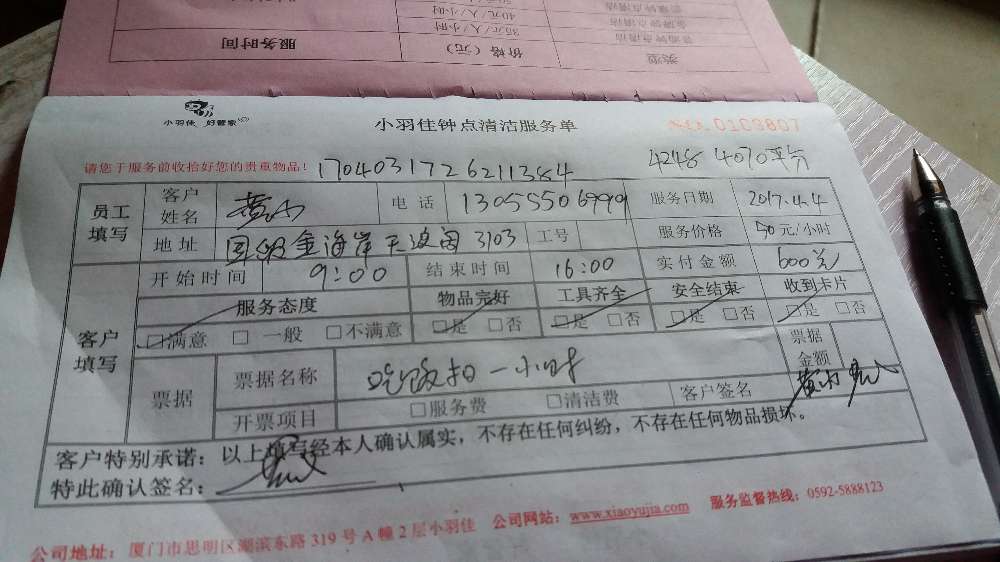 服务时间 价格（元） 类型
35元/人/小时 普通钟点清洁
40元/人/小时
小羽佳 好管家
小羽佳钟点清洁服务单
NO.0103807
请您于服务前收拾好您的贵重物品！ 1704031726211384 4248 4070平方
员工填写 客户姓名 黄小 电话 13055506999 服务日期 2017.4.4
地址 国贸金海岸天波阁 3103 工号 服务价格 50元/小时
客户填写 开始时间 9:00 结束时间 16:00 实付金额 600元
服务态度 物品完好 工具齐全 安全结束 收到卡片
□满意 □一般 □不满意 □是 □否 □是 □否 □是 □否 □是 □否
票据 票据名称 吃饭扣一小时 票据金额
开票项目 □服务费 □清洁费 客户签名
客户特别承诺：以上填写经本人确认属实，不存在任何纠纷，不存在任何物品损坏。
特此确认签名：
公司地址：厦门市思明区湖滨东路 319 号 A 幢 2 层小羽佳 公司网站：www.xiaoyujia.com 服务监督热线：0592-5888123